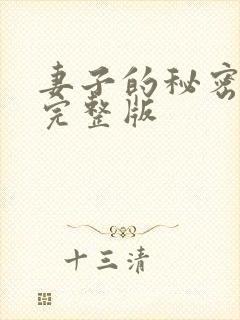 妻子的秘密
完整版
十三清